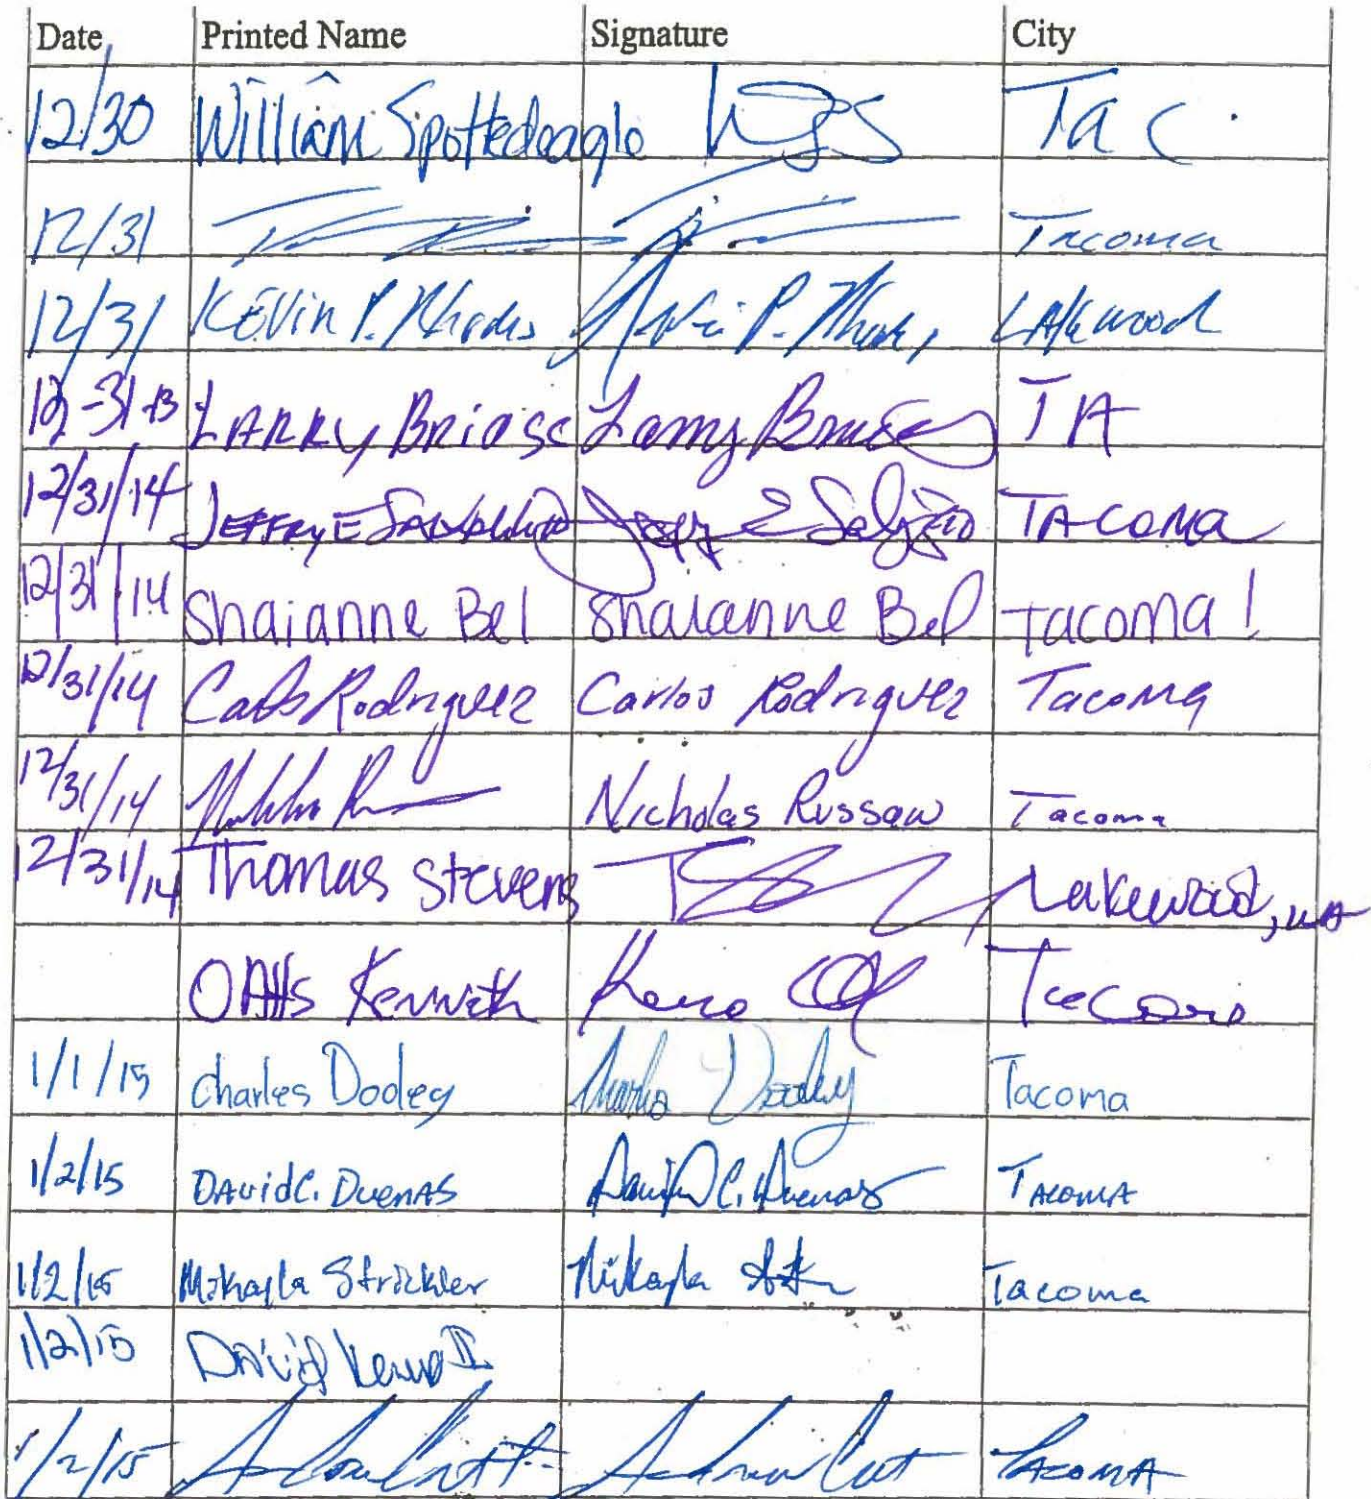 Date Printed Name Signature City
12/30 William Spottedeagle Tac.
12/31 Tacoma
12/31 Kevin P. Rhodes Lakewood
12-31-13 LARRY Larry TA
12/31/14 JEFFRY E TACOMA
12/31/14 Shaianne Bel Shaianne Bel Tacoma!
12/31/14 Carlos Rodriguez Carlos Rodriguez Tacoma
12/31/14 Nicholas Russaw Tacoma
12/31/14 Thomas Stevens Lakewood, WA
OAtts Kenneth
1/1/15 Charles Dooley Charles Dooley Tacoma
1/2/15 DAvid C. DuenAS David C. Duenas TAcomA
1/2/15 Mikayla Strickler Mikayla Tacoma
1/2/15 DAvid II
1/2/15 TAcomA